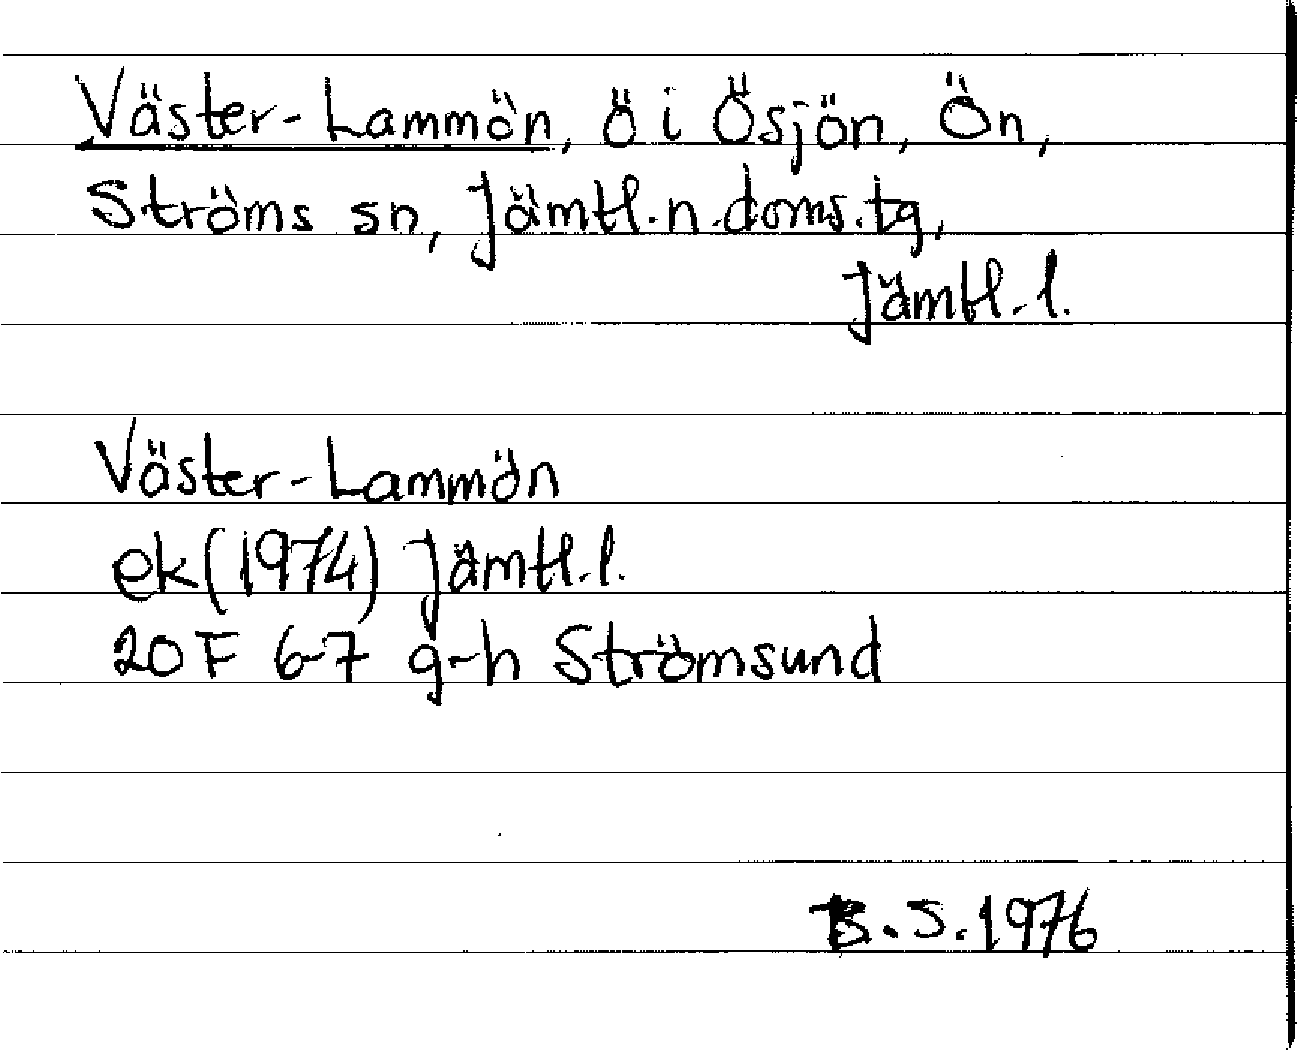 Väster-Lammön, Ö i Ösjön, Ön,
Ströms sn, Jämtl.n.doms.tg,
Jämtl.l.
Väster-Lammön
ek(1974) Jämtl.l.
20F 6-7 g-h Strömsund
B.S.1976